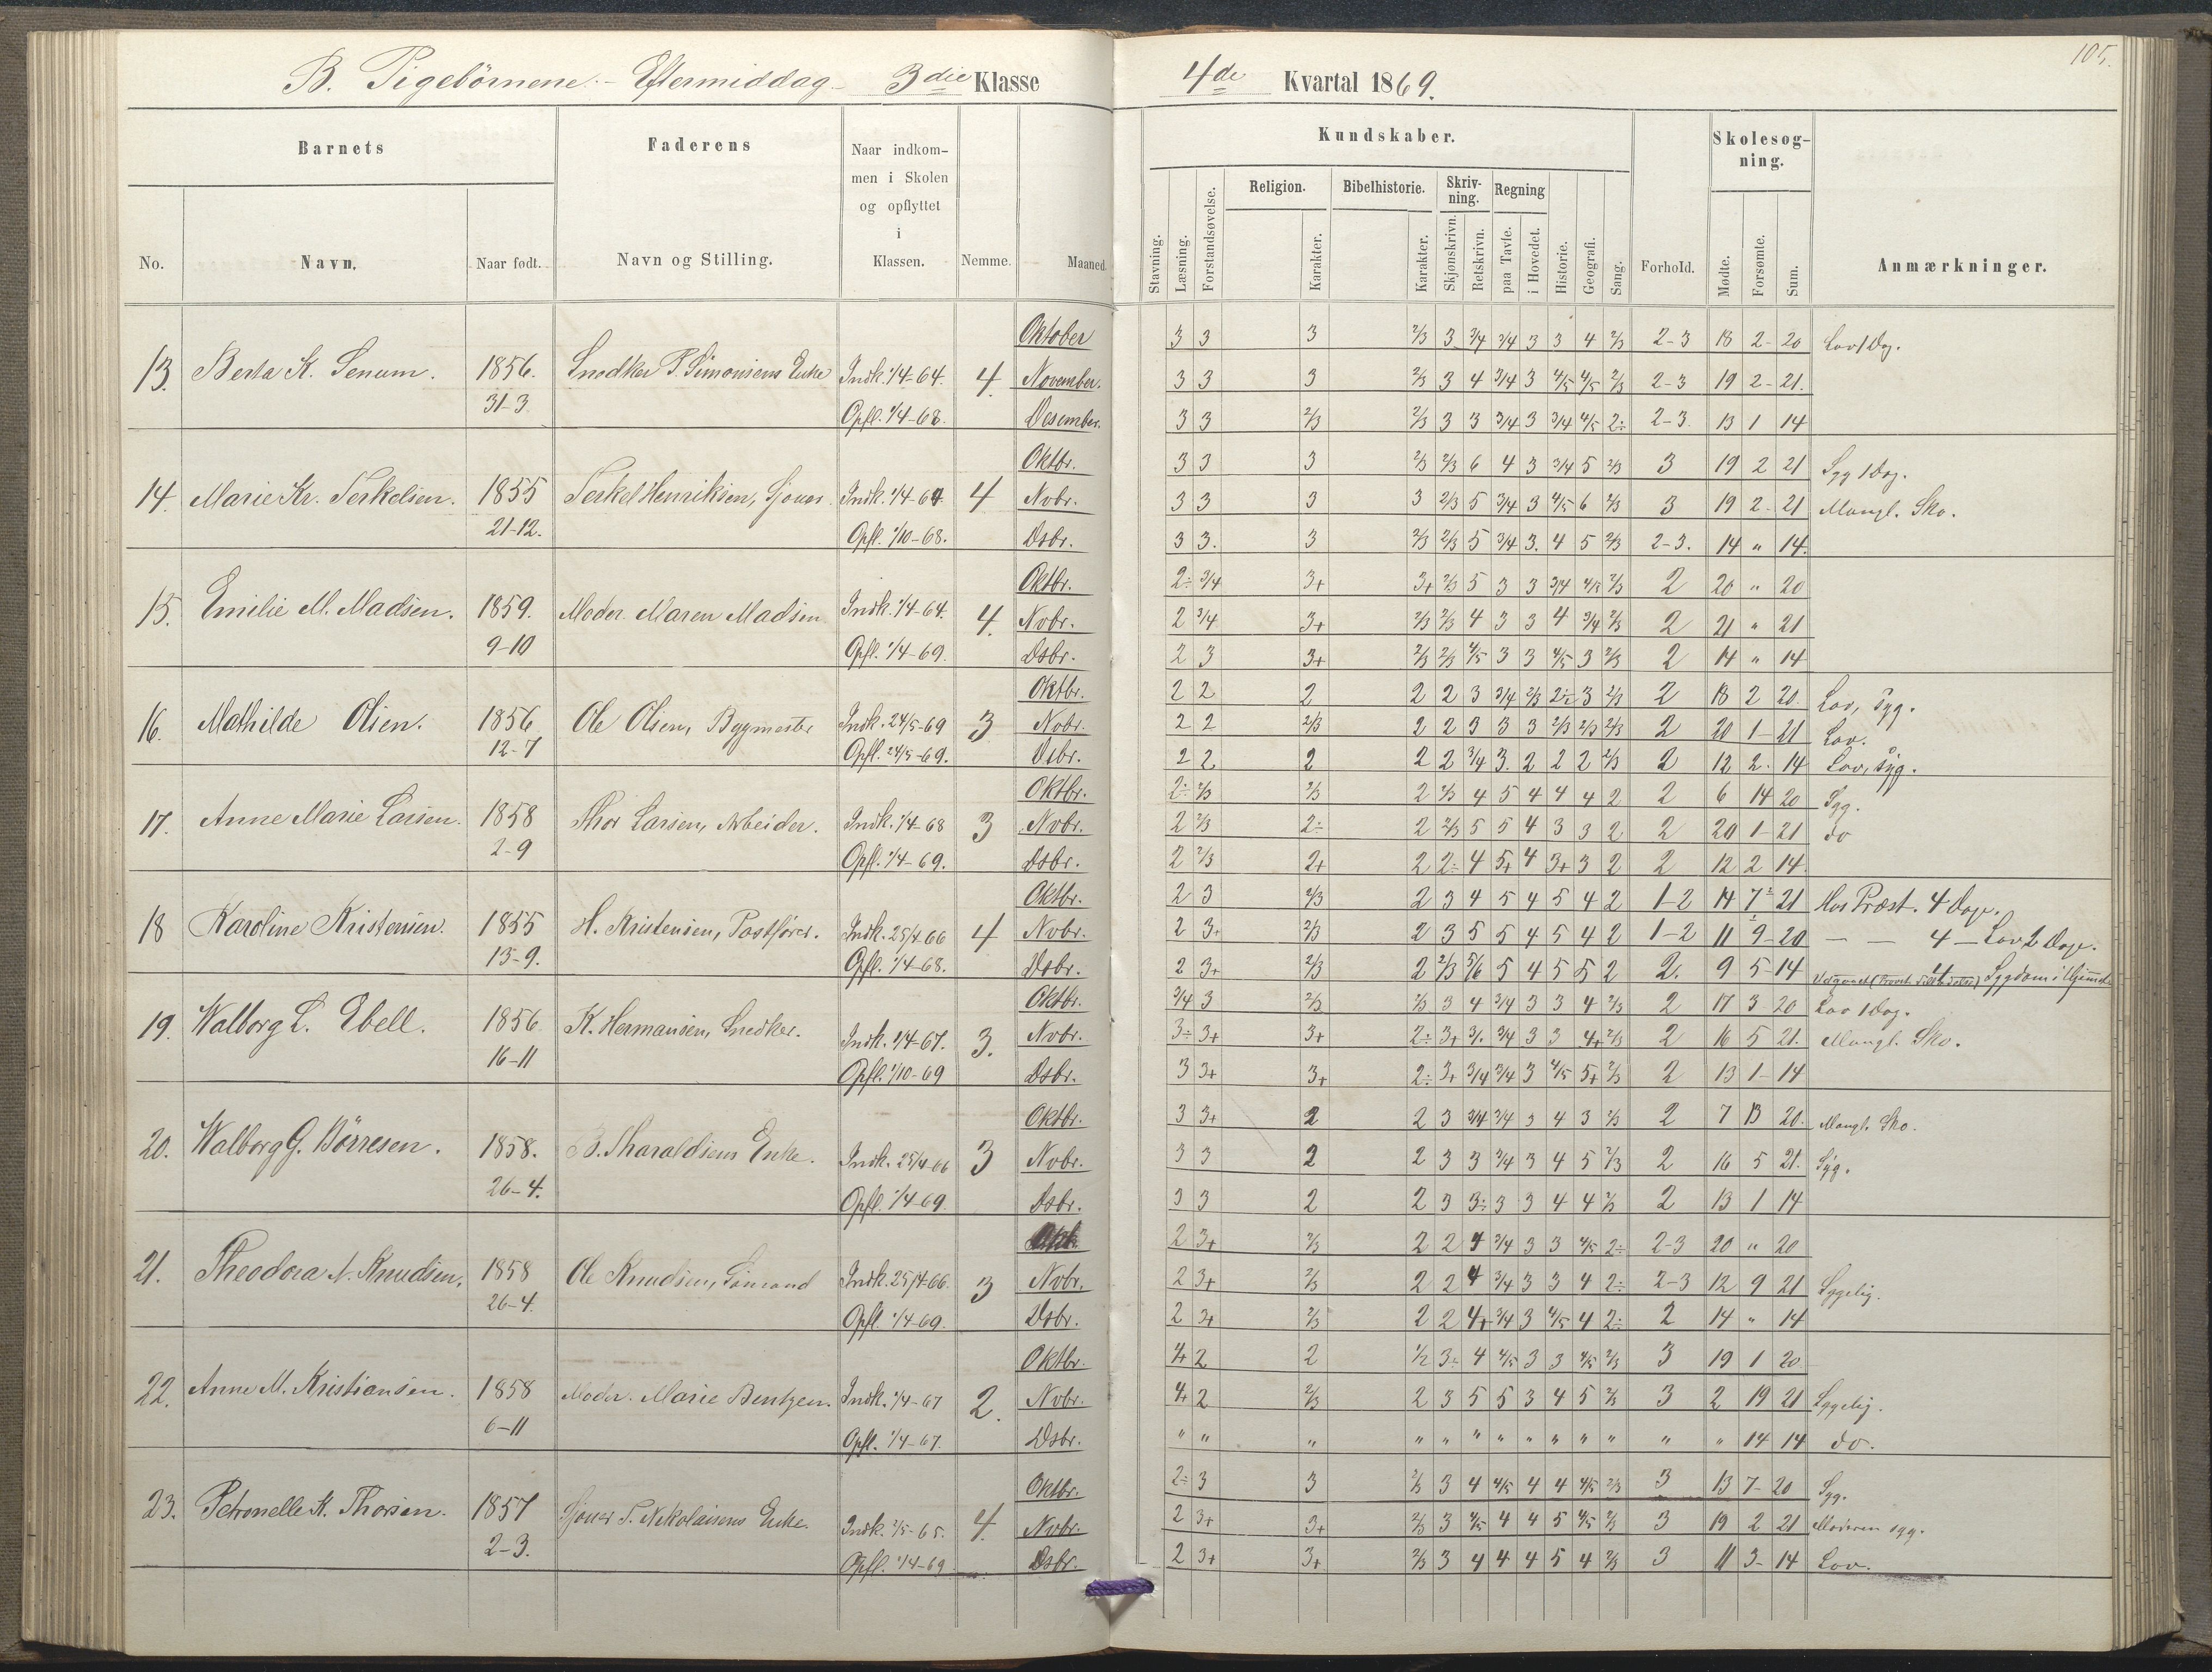 105.
B. Pigebörnene. – Eftermiddag – 3die Klasse 4de Kvartal 1869.
Barnets
Faderens
Naar indkom-
men i Skolen
og opflyttet
i
Klassen.
Kundskaber.
Skolesøg-
ning.
Religion. Bibelhistorie. Skriv-
ning. Regning
No. Navn. Naar født. Navn og Stilling. Nemme. Maaned. Stavning. Læsning. Forstandsøvelse. Karakter. Karakter. Skjønskrivn. Retskrivn. paa Tavle. i Hovedet. Historie. Geografi. Sang. Forhold. Mødte. Forsømte. Sum. Anmærkninger.
Oktober 3 3 3 2/3 3 3/4 3/4 3 3 4 2/3 2-3 18 2- 20 Lov 1 Dag.
13. Berta K. Senum. 1856. Snedker P. Simonsens Enke Indk. 1/4-64. 4. November. 3 3 3 2/3 3 4 3/4 3 4/5 4/5 2/3 2-3 19 2- 21.
31-3. Opfl. 1/4-68. Desember. 3 3 2/3 2/3 3 3 3/4 3 3/4 4/5 2÷ 2-3. 13 1 14
Oktbr. 3 3 3 2/3 2/3 6 4 3 3/4 5 2/3 3 19 2 21 Syg 1 Dag.
14. Marie Kr. Terkelsen. 1855 Terkel Henriksen, Sjouer. Indk. 1/4-64. 4 Nvbr. 3 3 3 3 2/3 5 3/4 3 4/5 6 2/3 3 19 2- 21 Mangl. Sko.
21-12. Opfl. 1/10-68. Dsbr. 3 3. 3 2/3 2/3 5 3/4 3. 4 5 2/3 2-3. 14 " 14.
Oktbr. 2÷ 3/4 3+ 3+ 2/3 5 3 3 3/4 4/5 2/3 2 20 " 20
15. Emilie M. Madsen. 1859. Moder. Maren Madsen Indk. 1/4-64. 4. Nvbr. 2 3/4 3+ 2/3 2/3 4 3 3 4 3/4 2/3 2 21 " 21
9-10 Opfl. 1/4-69. Dsbr. 2 3 3+ 2/3 2/3 4/5 3 3 4/5 3 2/3 2 14 " 14
Oktbr. 2 2 2 2 2 3 3/4 2/3 2÷ 3 2/3 2 18 2 20. Lov, Syg.
16. Mathilde Olsen. 1856 Ole Olsen, Bygmester Indk. 24/5-69 3 Nvbr. 2 2 2/3 2 2 3 3 3 2/3 2/3 2/3 2 20 1- 21 Lov.
12-7 Opfl. 24/5-69. Dsbr. 2 2 2 2 2 3/4 3. 2 2 2 2/3 2 12 2. 14 Lov, Syg.
Oktbr. 2÷ 2/3 2/3 2 2/3 4 5 4 4 4 2 2 6 14 20 Syg.
17. Anne Marie Larsen. 1858 Thor Larsen, Arbeider. Indk. 1/4-68 3 Nvbr. 2 2/3 2÷ 2 2/3 5 5 4 3 3 2 2 20 1- 21 do
2-9 Opfl. 1/4-69. Dsbr. 2 2/3 2+ 2 2÷ 4 5+ 4 3+ 3 2 2 12 2 14
Oktbr. 2 3 2/3 2 3 4 5 4 5 4 2 1-2 14 7÷ 21 Hos Præst. 4 Dage.
18 Karoline Kristensen. 1855 H. Kristensen, Postfører. Indk. 25/4-66 4 Nvbr. 2 3+ 2/3 2 3 5 5 4 5 4 2 1-2 11 9- 20 — — 4 — Lov 2 Dage.
13-9. Opfl. 1/4-68. Dsbr. 2 3+ 2/3 2 2/3 5/6 5 4 5 5 2 2. 9 5- 14 Sygdom i Hjemmet.
Oktbr. 3/4 3 2/3 2/3 3 4 3/4 3 3 4 2/3 2 17 3- 20 Lov 1 Dag.
19. Walborg L. Ebell. 1856 K. Hermansen, Snedker. Indk. 1/4-67. 3. Nvbr. 3÷ 3+ 3+ 2÷ 3+ 3/4 3/4 3 3 4+ 2/3 2 16 5 21. Mangl. Sko.
16-11 Opfl. 1/10-69 Dsbr. 3 3+ 3+ 2÷ 3+ 3/4 3/4 3 4/5 5+ 2/3 2 13 1- 14
Oktbr. 3 3+ 2 2 3 3/4 3/4 3 4 3 2/3 2 7 13 20. Mangl. Sko.
20. Walborg G. Börresen. 1858. B. Tharaldsens Enke. Indk. 25/4-66 3 Nvbr. 3 3 2 2 3 3 3/4 3 4 5 2/3 2 16 5 21. Syg.
26-4. Opfl. 1/4-69 Dsbr. 3 3 2 2 3 3÷ 3 3 4 4 2/3 2 13 1 14
2 3+ 2/3 2 2 4 3/4 3 3 4/5 2÷ 2-3 20 " 20
21. Theodora N. Knudsen, 1858 Ole Knudsen, Sömand Indk. 25/4-66. 3 Nvbr. 2 3+ 2/3 2 2 4 3/4 3 3 4 2÷ 2-3 12 9 21 Sygelig.
26-4. Opfl. 1/4-69. Dsbr. 2 3+ 2/3 2 2 4+ 3/4 3 4/5 4 2÷ 2 14 " 14
Oktbr. 4 2 2 1/2 3÷ 4 4/5 3 3 4/5 2/3 3 19 1 20
22. Anne M. Kristiansen. 1858 Moder. Marie Bentzen. Indk. 1/4-67 2. Nvbr. 4 2 2/3 2 3 5 5 3 4 5 2/3 3 2 19 21 Sygelig.
6-11 Opfl. 1/4-67. Dsbr. " " " " " " " " " " " " " 14 14 do.
Oktbr. 2÷ 3 3 2/3 3 4 4/5 4 4 4/5 2/3 3 13 7- 20 Syg.
23. Petronelle K. Thorsen. 1857 Sjouer T. Nikolaisens Enke. Indk. 2/5-65. 4. Nvbr. 2 3+ 3+ 2/3 3 4/5 4 4 5 4/5 2/3 3 19 2 21 Moderen syg.
2-3. Opfl. 1/4-69. Dsbr. 2 3+ 3+ 2/3 3 4 4 4 5 4 2/3 3 11 3- 14 Lov.